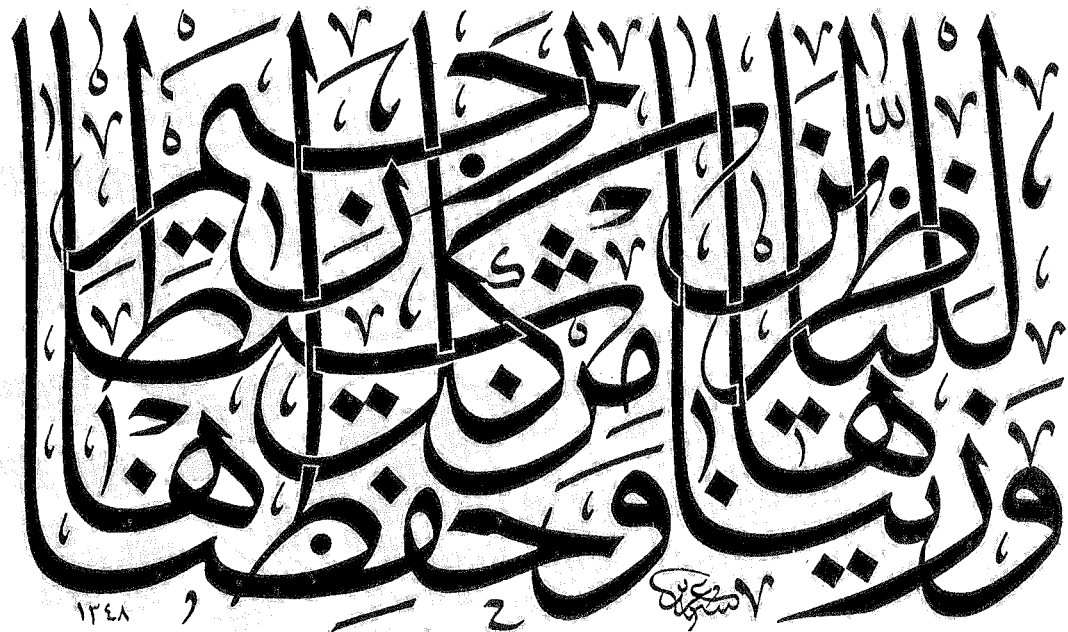 وَزَيَّنَّاهَا لِلنَّاظِرِينَ
وَحَفِظْنَاهَا مِنْ كُلِّ شَيْطَانٍ رَجِيمٍ
١٣٤٨